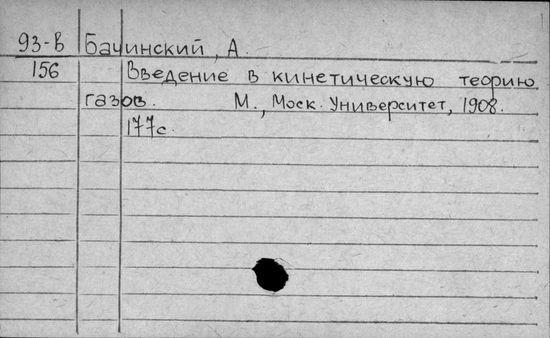 93-В Бачинский, А.
156 Введение в кинетическую теорию
газов. М., Моск. Университет, 1908.
177с.